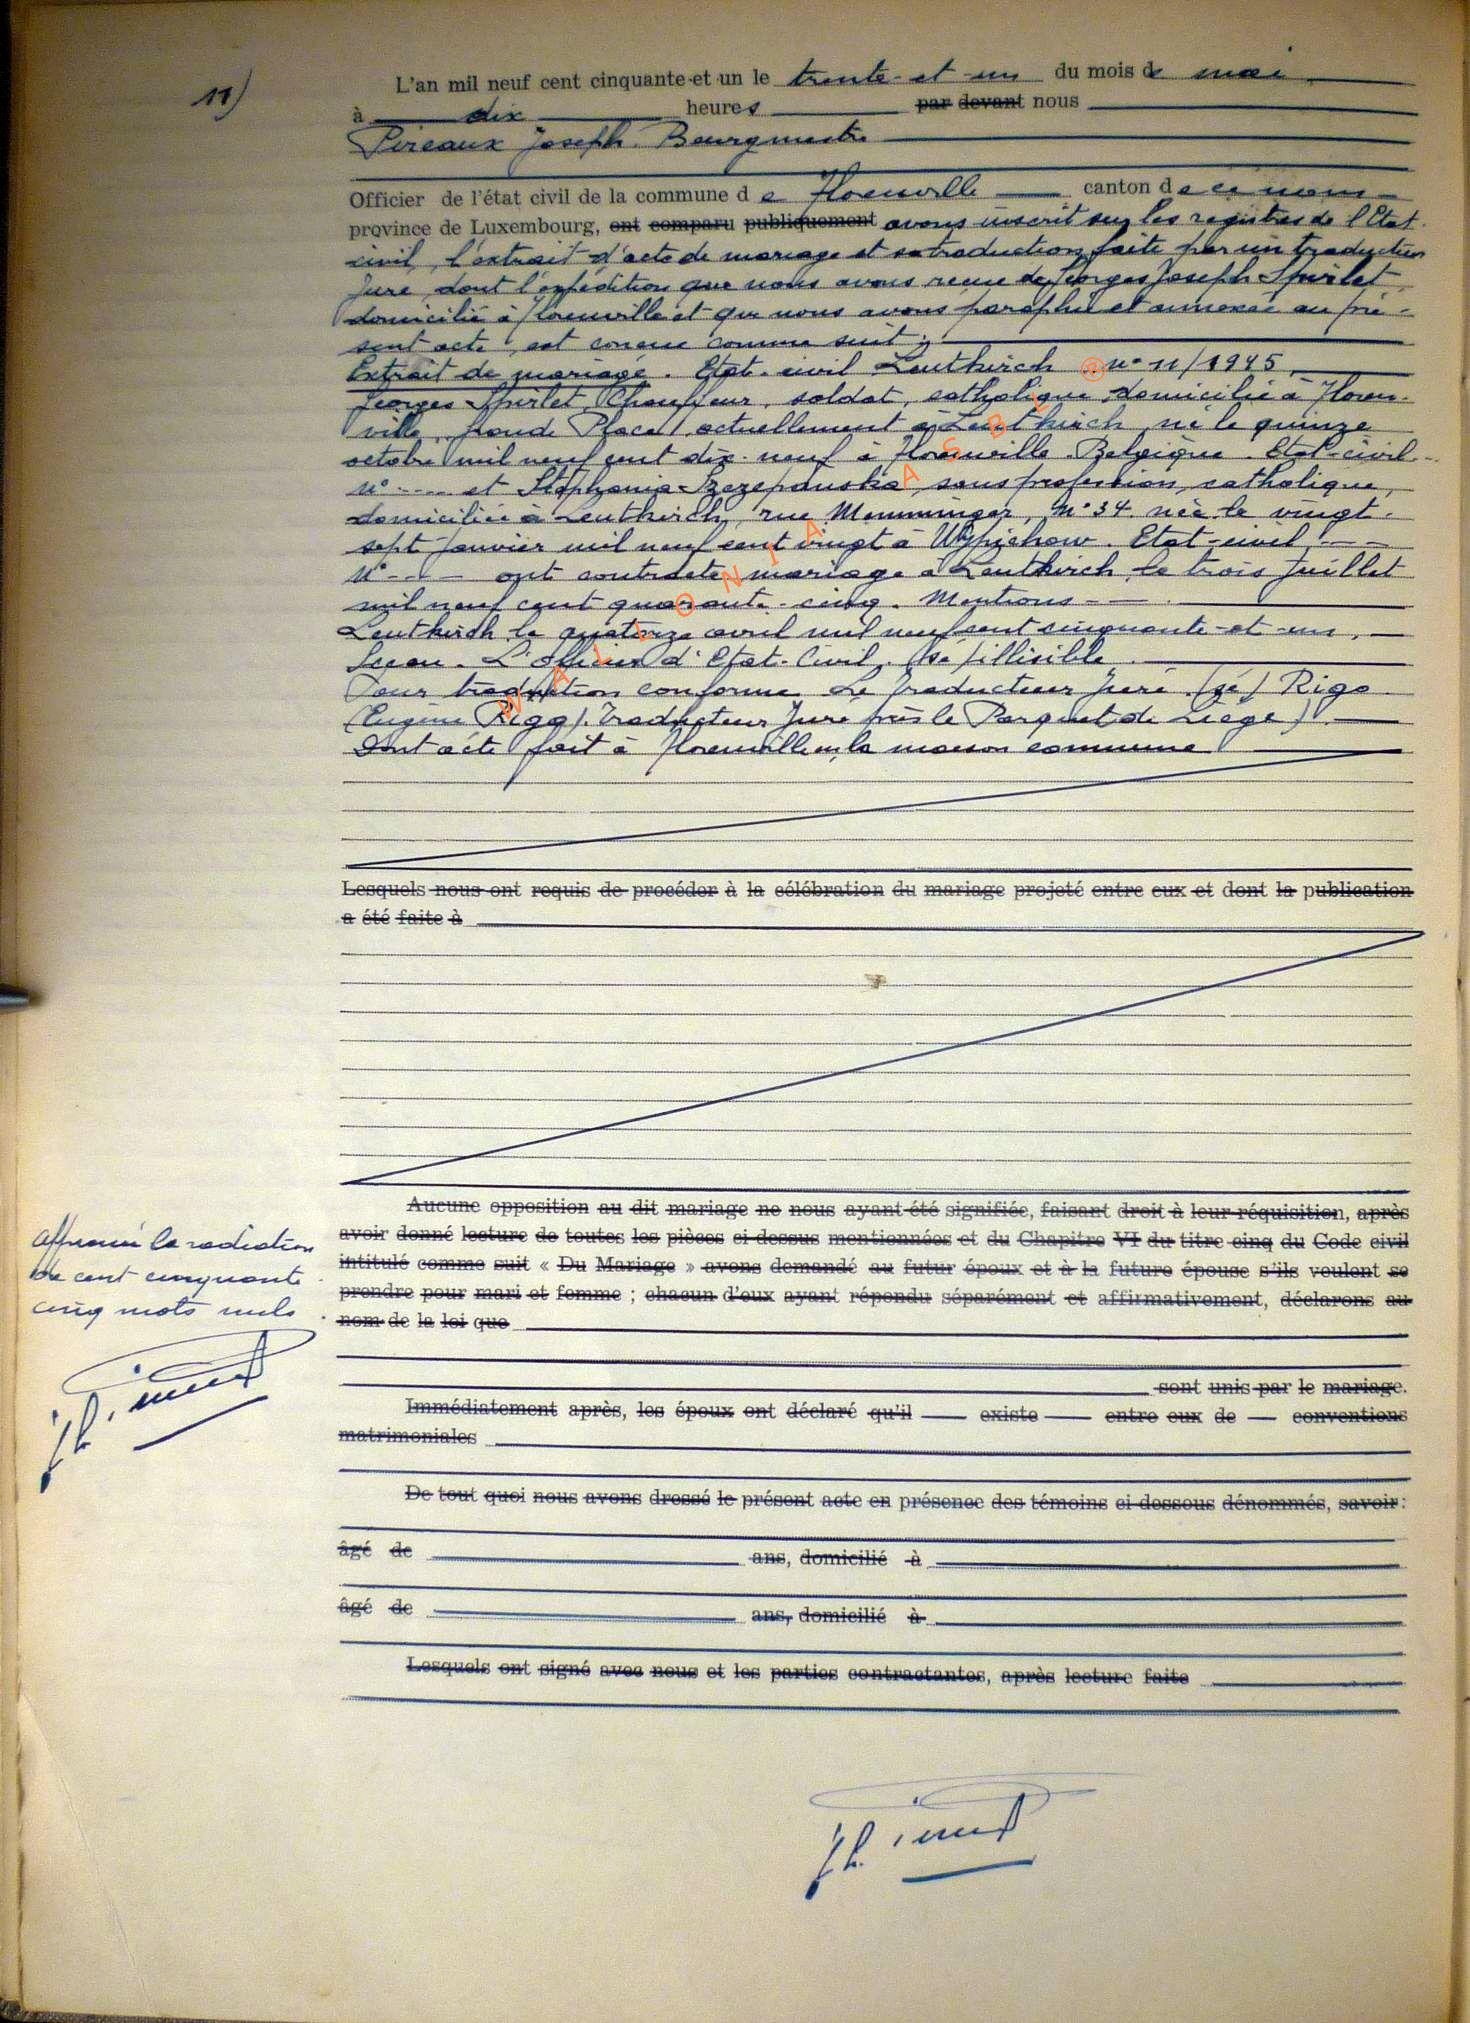 11)
L'an mil neuf cent cinquante et un le trente-et-un du mois de mai
à dix heures par devant nous
Pireaux Joseph. Bourgmestre
Officier de l'état civil de la commune de Florenville canton de ce nom
province de Luxembourg, ont comparu publiquement avons inscrit sur les registres de l'Etat
civil, l'extrait d'acte de mariage et sa traduction faite par un traducteur
Juré, dont l'expédition que nous avons reçue de Georges Joseph Spirlet
domicilié à Florenville et que nous avons paraphé et annexée au pré-
sent acte, est conçue comme suit :
Extrait de mariage. Etat-civil Leutkirch n° 11/1945.
Georges Spirlet, Chauffeur, soldat, catholique, domicilié à Floren-
ville, grande Place, actuellement à Leutkirch, né le quinze
octobre mil neuf cent dix-neuf à Florenville. Belgique. Etat-civil
n° ---- et Stéphania Szczepanska, sans profession, catholique,
domiciliée à Leutkirch, rue Memminger, N° 34. née le vingt-
sept Janvier mil neuf cent vingt à Wypichow. Etat-civil ---
N° ---- ont contracté mariage à Leutkirch le trois Juillet
mil neuf cent quarante-cinq. Mentions --- .
Leutkirch le quatorze avril mil neuf cent cinquante-et-un.
Sceau. L'Officier d'Etat-Civil. (sé) illisible.
Pour traduction conforme Le Traducteur Juré. (sé) Rigo
(Eugène Rigo). Traducteur Juré près le Parquet de Liège).
Dont acte fait à Florenville en la maison commune
WALLONIA ASBL ®
Lesquels nous ont requis de procéder à la célébration du mariage projeté entre eux et dont la publication
a été faite à
Aucune opposition au dit mariage ne nous ayant été signifiée, faisant droit à leur réquisition, après
avoir donné lecture de toutes les pièces ci-dessus mentionnées et du Chapitre VI du titre cinq du Code civil
intitulé comme suit « Du Mariage » avons demandé au futur époux et à la future épouse s'ils veulent se
prendre pour mari et femme ; chacun d'eux ayant répondu séparément et affirmativement, déclarons au
nom de la loi que
Approuvé la radiation
de cent cinquante
cinq mots nuls
sont unis par le mariage.
Immédiatement après, les époux ont déclaré qu'il existe entre eux de conventions
matrimoniales
De tout quoi nous avons dressé le présent acte en présence des témoins ci-dessous dénommés, savoir :
âgé de ans, domicilié à
âgé de ans, domicilié à
Lesquels ont signé avec nous et les parties contractantes, après lecture faite